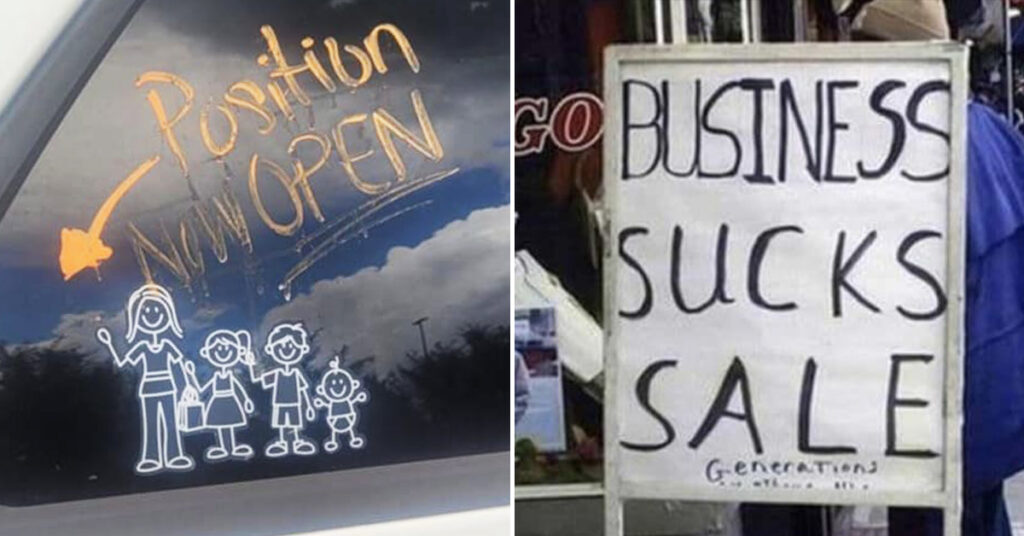 Position
NOW OPEN
GO
BUSINESS
SUCKS
SALE
Generations